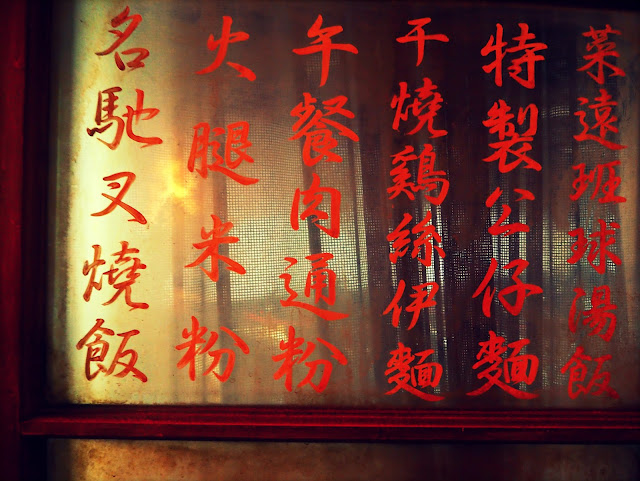 菜遠班球湯飯
特製公仔麵
干燒鷄絲伊麵
午餐肉通粉
火腿米粉
名馳叉燒飯